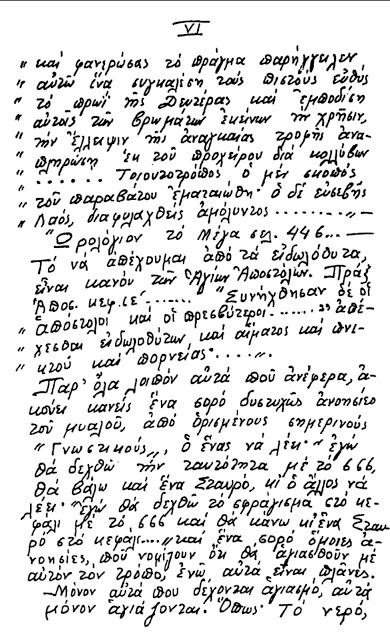 VI
" καί φανερώσας τό πρᾶγμα παρήγγειλεν
" αὐτῷ ἵνα συγκαλέσῃ τούς πιστούς εὐθύς
" τό πρωΐ τῆς Δευτέρας καί ἐμποδίσῃ
" αὐτοῖς τῶν βρωμάτων ἐκείνων τήν χρῆσιν,
" τήν ἔλλειψιν τῆς ἀναγκαίας τροφῆς ἀνα-
" πληρώσῃ ἐκ τοῦ προχείρου διά κολλύβων
" ...... Τοιουτοτρόπως ὁ μέν σκοπός
" τοῦ παραβάτου ἐματαιώθη· ὁ δέ εὐσεβής
" Λαός, διαφυλαχθείς ἀμόλυντος ........ " —
"Ὡρολόγιον τό Μέγα σελ. 446... —
Τό νά ἀπέχουμαι ἀπό τά εἰδωλόθυτα,
εἶναι κανόν τῶν Ἁγίων Ἀποστόλων. Πράξ
Ἀποσ. κεφ. ιε´....... "Συνήχθησαν δέ οἱ
" ἀπόστολοι καί οἱ πρεσβύτεροι....... " ἀπέ-
" χεσθαι εἰδωλοθύτων καί αἵματος καί πνι-
" κτοῦ καί πορνείας.....".
Παρ' ὅλα λοιπόν αὐτά πού ἀνέφερα, ἀ-
κούει κανείς ἕνα σορό δυστυχῶς ἀνοησίες
τοῦ μυαλοῦ, ἀπό ὁρισμένους σημερινούς
"Γνωστικούς", ὁ ἕνας νά λέει· "ἐγώ
θά δεχθῶ τήν ταυτότητα μέ τό 666,
θά βάλω καί ἕνα Σταυρό, κι ὁ ἄλλος νά
λέει· "ἐγώ θά δεχθῶ τό σφράγισμα στό κε-
φάλι μέ τό 666 καί θά κανω κι ἕνα Σταυ-
ρό στό κεφάλι...." καί ἕνα σορό ὅμοιες ἀ-
νοησίες, πού νομίζουν ὅτι θά ἁγιασθοῦν μέ
αὐτόν τον τρόπο, ἐνῶ αὐτά εἶναι πλάνες.
—Μόνον αὐτά που δέχονται ἁγιασμό, αὐτά
μόνον ἁγιάζονται. Ὅπως· Τό νερό,